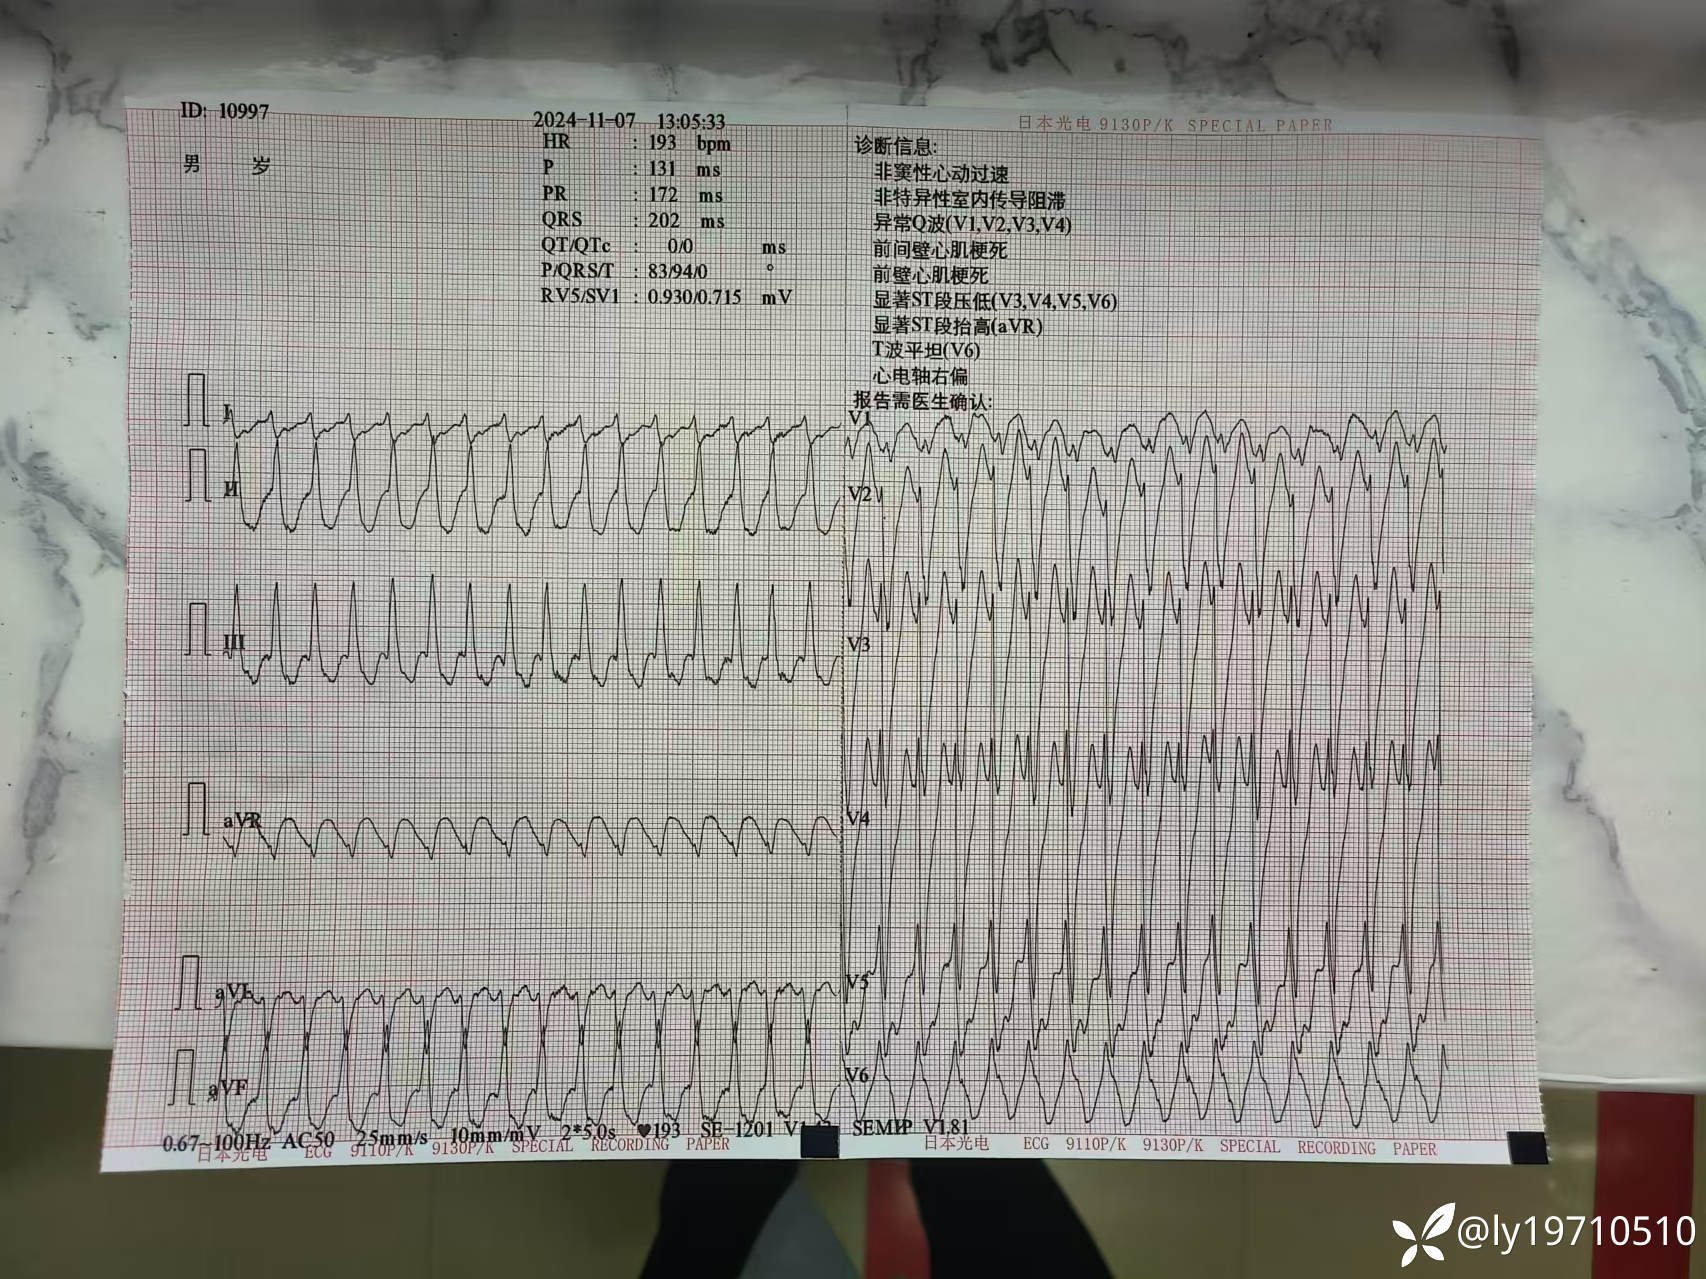 ID: 10997
男 岁
2024-11-07 13:05:33
HR : 193 bpm
P : 131 ms
PR : 172 ms
QRS : 202 ms
QT/QTc : 0/0 ms
P/QRS/T : 83/94/0 °
RV5/SV1 : 0.930/0.715 mV
日本光电 9130P/K SPECIAL PAPER
诊断信息:
非窦性心动过速
非特异性室内传导阻滞
异常Q波(V1,V2,V3,V4)
前间壁心肌梗死
前壁心肌梗死
显著ST段压低(V3,V4,V5,V6)
显著ST段抬高(aVR)
T波平坦(V6)
心电轴右偏
报告需医生确认:
I
II
III
aVR
aVL
aVF
V1
V2
V3
V4
V5
V6
0.67~100Hz AC50 25mm/s 10mm/mV 2*5.0s ♥193 SE-1201 SEMIP V1.81
日本光电 ECG 9110P/K 9130P/K SPECIAL RECORDING PAPER
日本光电 ECG 9110P/K 9130P/K SPECIAL RECORDING PAPER
@ly19710510